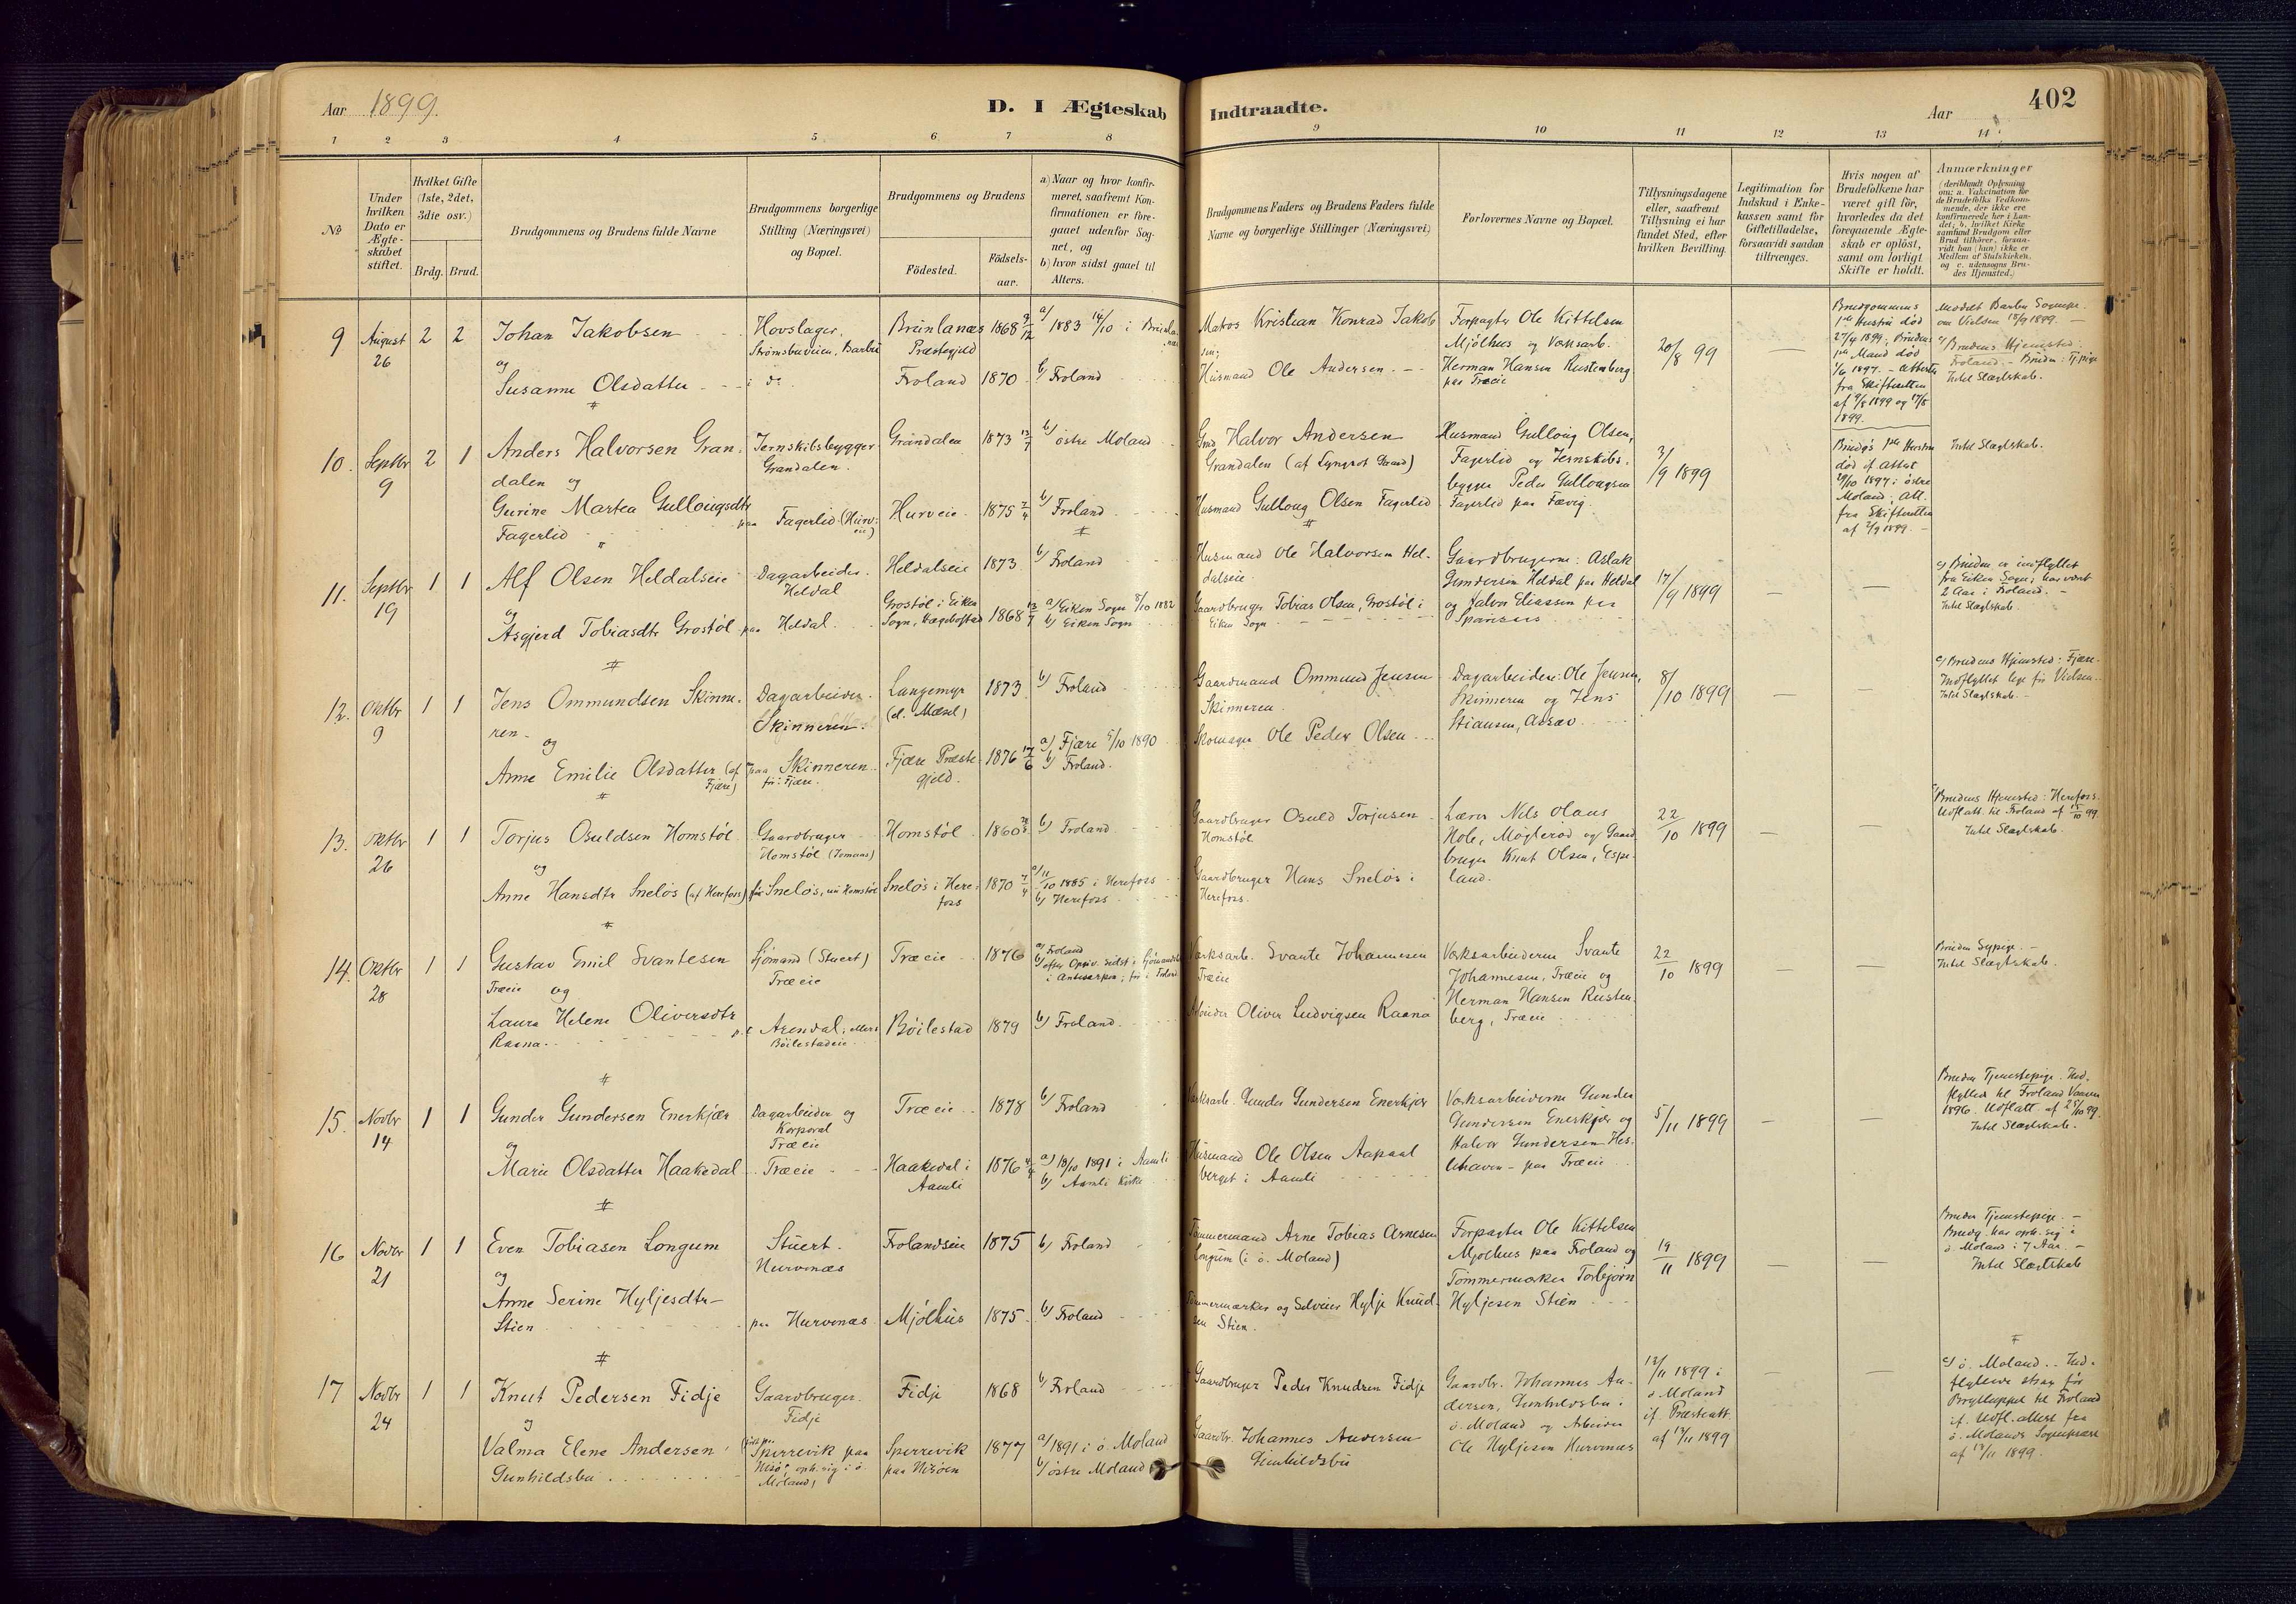 Aar 1899.
D. I Ægteskab Indtraadte.
Aar
402
1 2 3 4 5 6 7 8 9 10 11 12 13 14
No
Under hvilken Dato er Ægte-skabet stiftet.
Hvilket Gifte (1ste, 2det, 3die osv.)
Brdg. Brud.
Brudgommens og Brudens fulde Navne
Brudgommens borgerlige Stilling (Næringsvei) og Bopæl.
Brudgommens og Brudens
Fødested.
Fødsels-aar.
a) Naar og hvor konfir-meret, saafremt Kon-firmationen er fore-gaaet udenfor Sog-net, og
b) hvor sidst gaaet til Alters.
Brudgommens Faders og Brudens Faders fulde Navne og borgerlige Stillinger (Næringsvei)
Forlovernes Navne og Bopæl.
Tillysningsdagene eller, saafremt Tillysning ei har fundet Sted, efter hvilken Bevilling.
Legitimation for Indskud i Enke-kassen samt for Giftetilladelse, forsaavidt saadan tiltrænges.
Hvis nogen af Brudefolkene har været gift før, hvorledes da det foregaaende Ægte-skab er opløst, samt om lovligt Skifte er holdt.
Anmærkninger
(deriblandt Oplysning om: a. Vakcination for de Brudefolks Vedkom-mende, der ikke ere konfirmerede her i Lan-det; b. hvilket Kirke-samfund Brudgom eller Brud tilhører, forsaa-vidt han (hun) ikke er Medlem af Statskirken, og c. udensogns Bru-des Hjemsted.)
9 August 26 2 2
Johan Jakobsen
og
Susanne Olsdatter
Hovslager.
Strømsbuveien, Barbu
i do
Brunlanæs Præstegjeld 1868 9/12
Froland 1870
a) 1883 14/10 i Brunlanæs
b) Froland
Matros Kristian Konrad Jakobsen;
Husmand Ole Andersen.
Forpagter Ole Kittelsen
Mjølhus og Værksarb.
Herman Hansen Rustenberg
paa Træeie
20/8 99
—
Brudgommens
1ste Hustru død
27/4 1899; Brudens
1ste Mand død
1/6 1897. – Attester
fra Skifteretten
af 9/8 1899 og 17/8
1899.
Meddelt Barbu Sognepr.
om Vielsen 18/9 1899. —
c) Brudens Hjemsted
Froland. – Bruden: Tj.pige
Intet Slægtskab.
10. Septbr 9 2 1
Anders Halvorsen Gran-
dalen og
Gurine Martea Gullougsdtr
Fagerlid
Jernskibsbygger
Grandalen.
paa Fagerlid (Hurv-eie)
Grandalen 1873 13/7
Hurveie 1875 2/4
b) østre Moland
b) Froland
Halvor Andersen
Grandalen
Husmand Gulloug Olsen Fagerlid
Husmand Gulloug Olsen,
Fagerlid og Jernskibs-
bygger Peder Gullougsen
Fagerlid paa Fævig.
3/9 1899
Brudgs 1ste Hustru
død if. Attest
29/10 1897 i østre
Moland; Att.
fra Skifteretten
af 2/9 1899. –
Intet Slægtskab.
11. Septbr 19 1 1
Alf Olsen Heldalseie
og
Asgjerd Tobiasdtr Grostøl
Dagarbeider.
Heldal
paa Heldal
Heldalseie 1873
Grostøl i Eiken
Sogn, Hægebostad 1868 13/7
b) Froland
a) Eiken Sogn 8/10 1882
b) Eiken Sogn
Husmand Ole Halvorsen Hel-
dalseie.
Gaardbruger Tobias Olsen, Grostøl i
Eiken Sogn
Gaardbrugerne: Aslak
Gundersen Heldal paa Heldal
og Halvor Eliassen paa
17/9 1899
— —
c) Bruden er indflyttet
fra Eiken Sogn; har været
2 Aar i Froland. –
Intet Slægtskab.
12. Oktbr 9 1 1
Jens Ommundsen Skinne-
ren
og
Anne Emilie Olsdatter (af Fjære)
Dagarbeider.
Skinneren.
paa Skinneren
før: Fjære.
Langemyr 1873
(d. Mæsel)
Fjære Præste-
gjeld. 1876 17/6
b) Froland
a) Fjære 5/10 1890
b) Froland.
Gaardmand Ommund Jensen
Skinneren.
Skomager Ole Peder Olsen
Dagarbeidere: Ole Jensen,
Skinneren og Jens
Stiansen, Aasæv
8/10 1899
— —
c) Brudens Hjemsted: Fjære.
Indflyttet lige før Vielsen.
Intet Slægtskab. –
13. Oktbr 26 1 1
Torjus Osuldsen Homstøl
og
Anne Hansdtr Sneløs (af Herefoss)
Gaardbruger
Homstøl
før Sneløs, nu Homstøl
Homstøl 1860
Sneløs i Here-
foss 1870 7/4
b) Froland
a) 11/10 1885 i Herefoss
b) Herefoss
Gaardbruger Osuld Torjusen
Homstøl
Gaardbruger Hans Sneløs i
Herefoss.
Lærer Nils Olaus
Hobe, Møglerød og Gaard-
bruger Knut Olsen, Espe-
land.
22/10 1899
— —
Brudens Hjemsted: Herefoss.
Udfl.att. til Froland af 15/10 99.
Intet Slægtskab.
14. Oktbr 28 1 1
Gustav Emil Svantesen
Træeie og
Laura Helene Oliversdtr
Raana.
Sjømand (Stuert)
Træeie
Arendal;
Bøilestadeie
Træeie 1876
Bøilestad 1879
a) Froland
b) efter Opgiv. sidst i Sjømandsk.
i Antwerpen; før i Froland
b) Froland.
Værksarb. Svante Johannesen
Træeie
Arbeider Oliver Ludvigsen Raana
Værksarbeiderne Svante
Johannesen, Træeie og
Herman Hansen Rusten-
berg, Træeie
22/10 1899
— —
Bruden Sypige. –
Intet Slægtskab.
15. Novbr 14 1 1
Gunder Gundersen Enerkjær
og
Marie Olsdatter Haakedal
Dagarbeider og
Korporal
Træeie
Træeie
Træeie 1878
Haakedal i
Aamli 1876 4/4
b) Froland
a) 18/10 1891 i Aamli
b) Aamli Kirke
Værksarb. Gunder Gundersen Enerkjær
Husmand Ole Olsen Aapaal
berget i Aamli
Værksarbeiderne Gunder
Gundersen Enerkjær og
Halvor Gundersen Hes-
lehaven – paa Træeie
5/11 1899
— —
Bruden Tjenestepige. Ind-
flyttet til Froland Vaaren
1896. Udfl.att. af 25/10 99.
Intet Slægtskab.
16 Novbr 21 1 1
Even Tobiasen Longum
og
Anne Serine Hyljesdtr
Stien
Stuert.
Hurvenæs
paa Hurvenæs
Frolandseie 1875
Mjølhus 1875
b) Froland
b) Froland
Tømmermand Arne Tobias Arnesen
Longum (i ø. Moland)
Tømmermærker og Selveier Hylje Knud-
sen Stien.
Forpagter Ole Kittelsen
Mjølhus paa Froland og
Tømmermærker Torbjørn
Hyljesen Stien
19/11 1899
— —
Bruden Tjenestepige. –
Brudg. har oph. sig i
ø. Moland i 7 Aar. –
Intet Slægtskab
17 Novbr 24 1 1
Knut Pedersen Fidje
og
Valma Elene Andersen
Gunhildsbu
Gaardbruger.
Fidje
Sperrevik paa
Nesø oph. sig i ø.
Moland)
Fidje 1868
Sperrevik
paa Nesøen 1877
b) Froland
a) 1891 i ø. Moland
b) østre Moland
Gaardbruger Peder Knudsen Fidje
Gaardbr. Johannes Andersen
Gunhildsbu
Gaardbr. Johannes An-
dersen, Gunhildsbu i
ø. Moland og Arbeider
Ole Hyljesen Hurvenæs
12/11 1899 i
ø Moland
if. Præsteatt.
af 13/11 1899
— —
c) ø. Moland. – Ind-
flyttede strax før
Brylluppet til Froland
if. Udfl.attest fra
ø. Molands Sognepræst
af 13/11 1899.